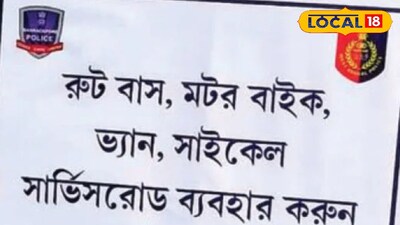 LOCAL 18
POLICE
রুট বাস, মটর বাইক,
ভ্যান, সাইকেল
সার্ভিসরোড ব্যবহার করুন